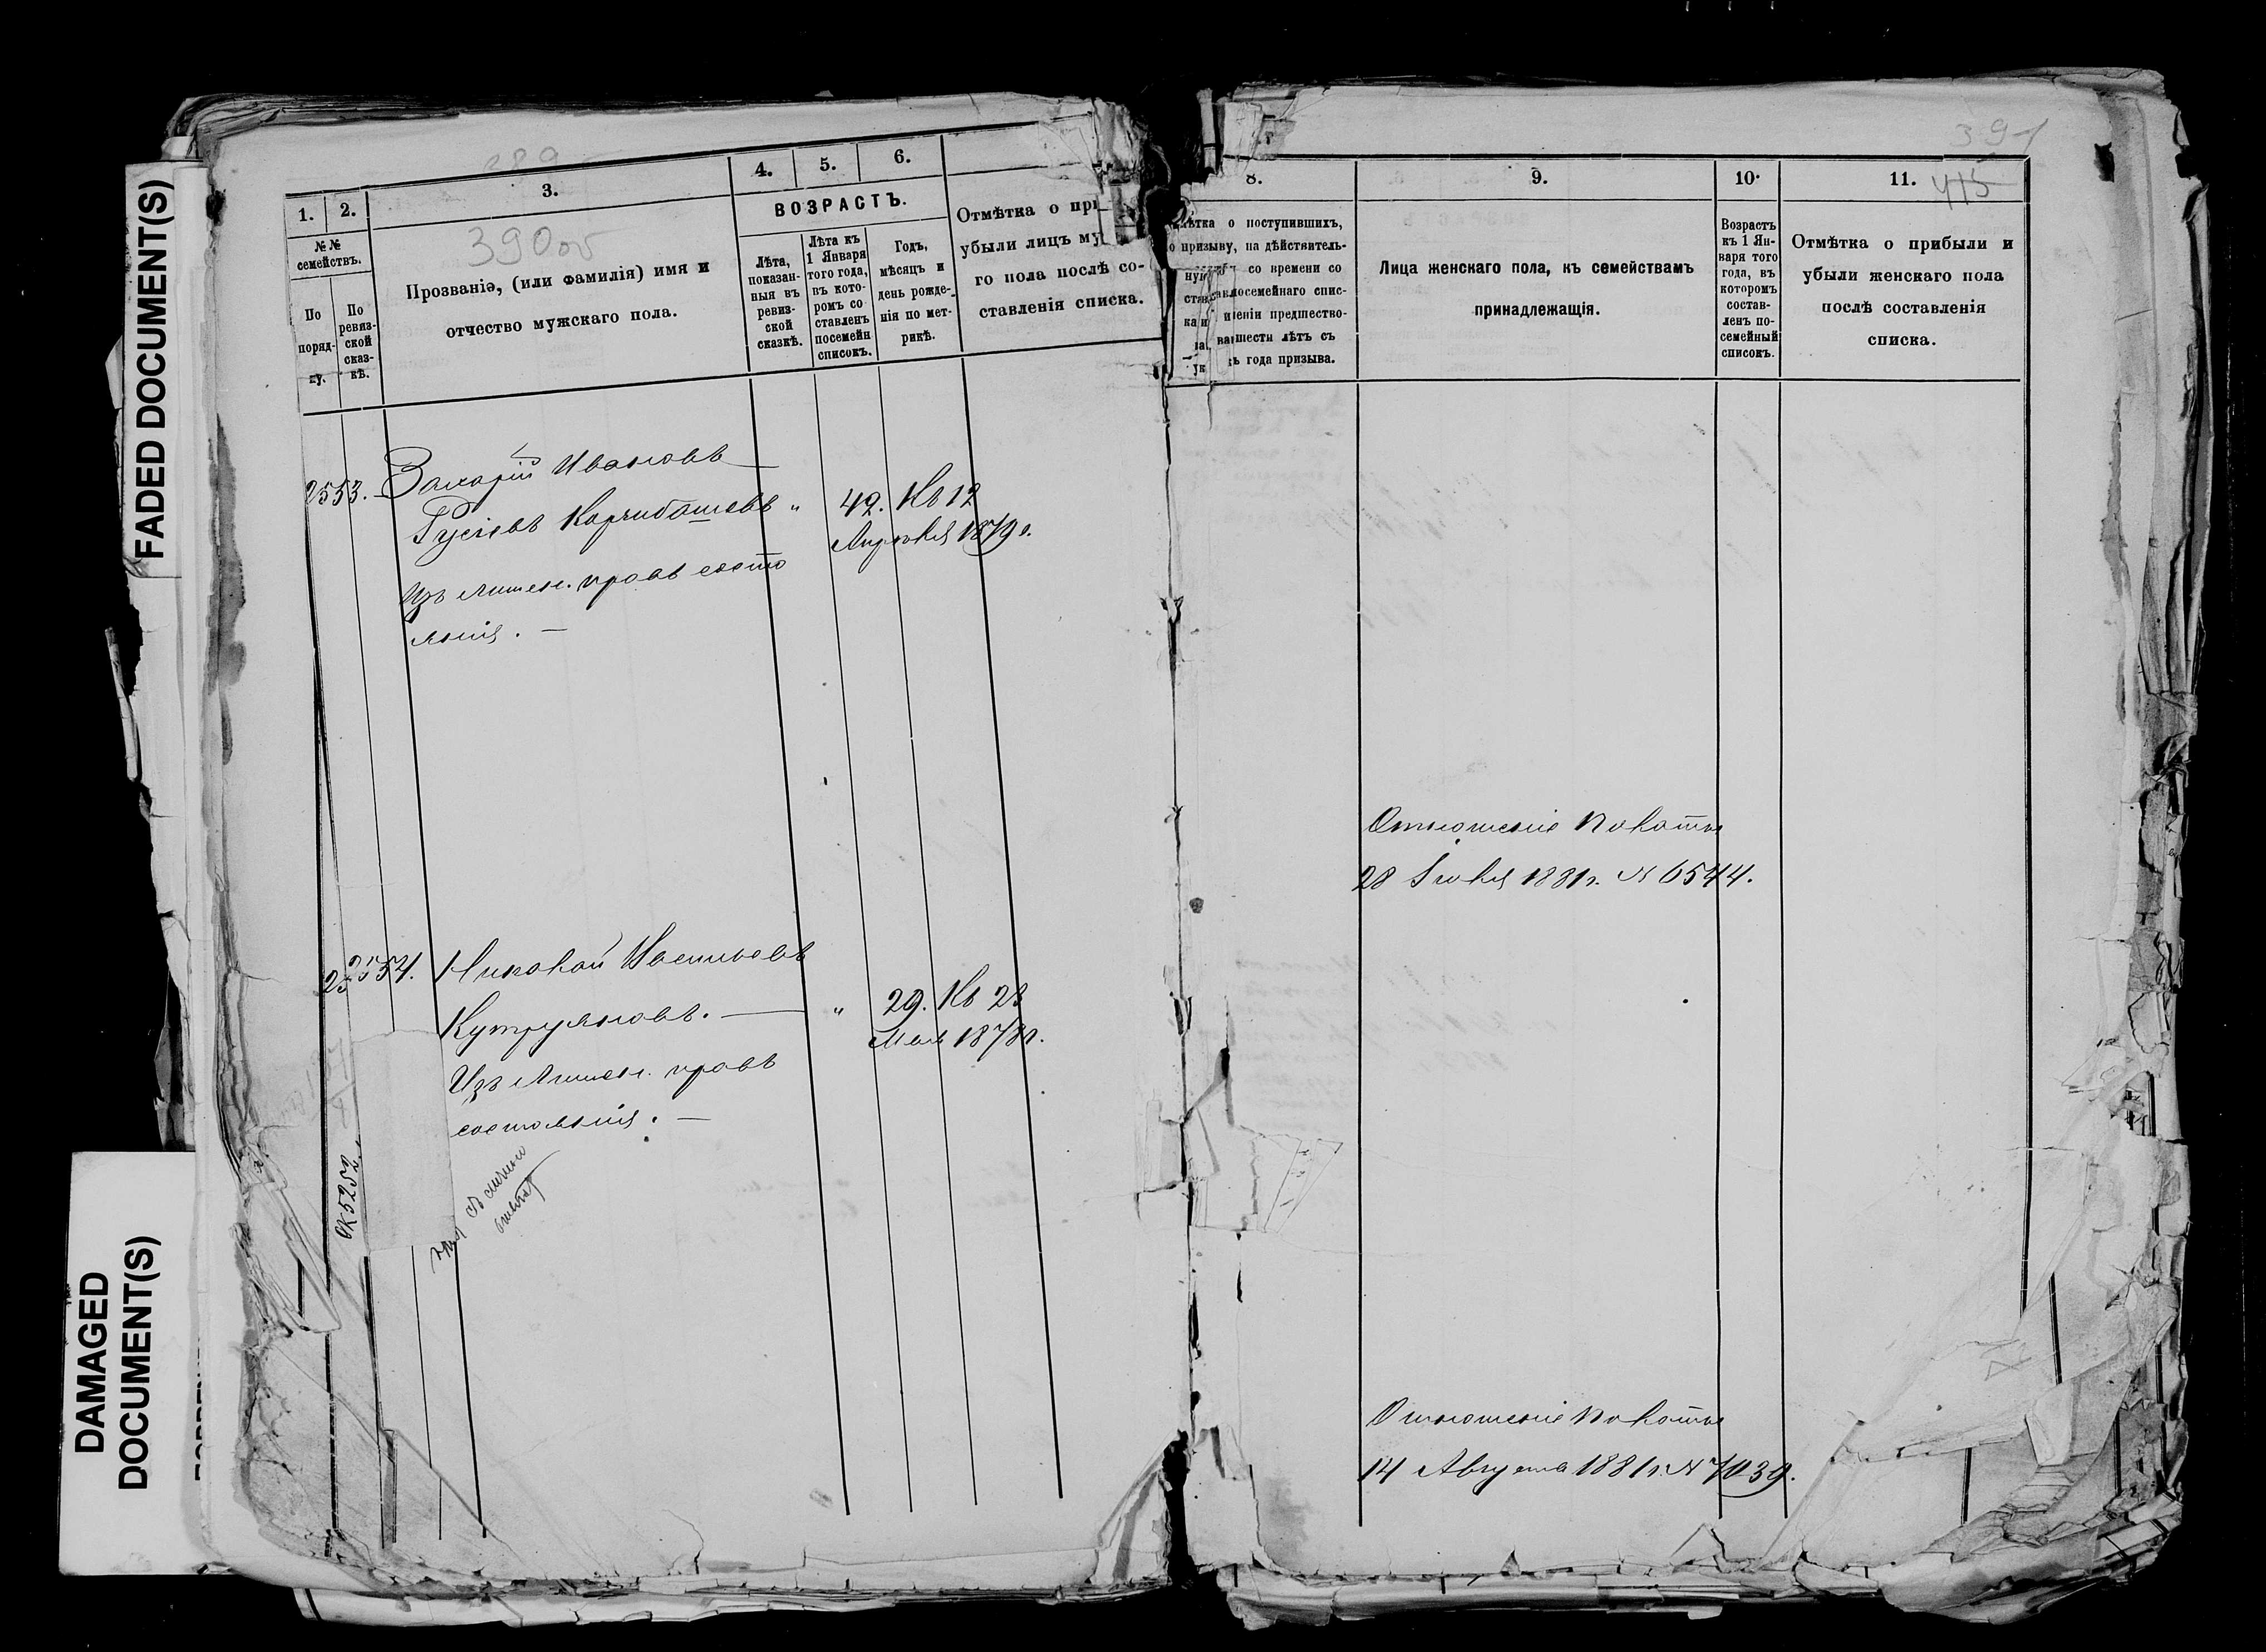 FADED DOCUMENT(S)
DAMAGED
DOCUMENT(S)
389
390об
1.
2.
3.
4.
5.
6.
№ №
семействъ.
По
поряд-
ку.
По
ревиз-
ской
сказ-
кѣ.
Прозваніе, (или фамилія) имя и
отчество мужскаго пола.
ВОЗРАСТЪ.
Лѣта,
показан-
ныя въ
ревиз-
ской
сказкѣ.
Лѣта къ
1 Января
того года,
въ кото-
ромъ со
ставленъ
посемейн
списокъ.
Годъ,
мѣсяцъ и
день рожде-
нія по мет-
рикѣ.
Отмѣтка о при
убыли лицъ му
го пола послѣ со-
ставленія списка.
2553. Захарій Ивановъ
Гусіевъ Карчибашевъ „ 42. Къ 12
Апрѣля 1879 г.
Изъ лишен. правъ состо
янія. —
2554. Николай Васильевъ
Кутруяновъ. — „ 29. Къ 28
Мая 1878 г.
Изъ лишен. правъ
состоянія. —
ОК 5252
391
415
8.
9.
10.
11.
ѣтка о поступившихъ,
о призыву, на дѣйствитель-
со времени со
посемейнаго спис-
шеніи предшество-
шести лѣтъ съ
года призыва.
Лица женскаго пола, къ семействамъ
принадлежащія.
Возрастъ
къ 1 Ян-
варя того
года, въ
которомъ
состав-
ленъ по-
семейный
списокъ.
Отмѣтка о прибыли и
убыли женскаго пола
послѣ составленія
списка.
Отношеніе Палаты
28 Іюля 1881 г. № 6544.
Отношеніе Палаты
14 Августа 1881 г. № 7039.